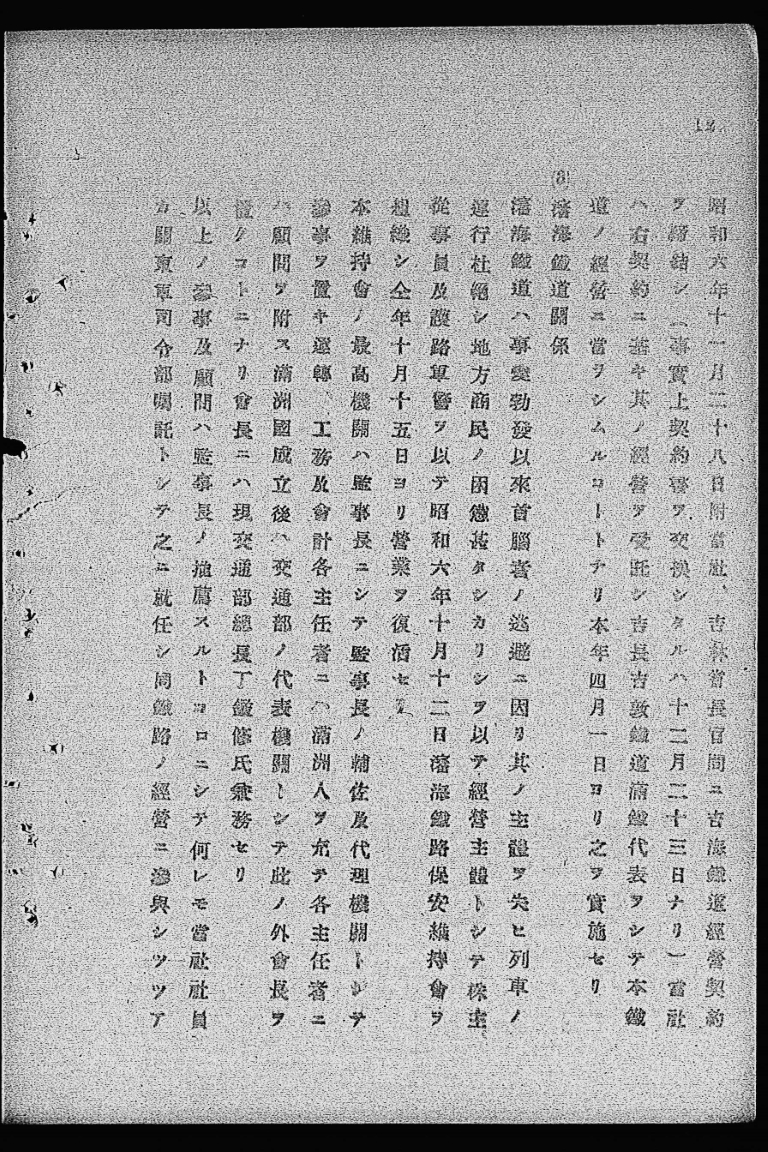 12
昭和六年十一月二十八日附當社、吉林省長官間ニ吉海鐵道經營契約
ヲ締結シ(事實上契約書ヲ交換シタルハ十二月二十三日ナリ)當社
ハ右契約ニ基キ其ノ經營ヲ受託シ吉長吉敦鐵道滿鐵代表ヲシテ本鐵
道ノ經營ニ當ラシムルコトトナリ本年四月一日ヨリ之ヲ實施セリ
(3) 瀋海鐵道關係
瀋海鐵道ハ事變勃發以來首腦者ノ逃避ニ因リ其ノ主體ヲ失ヒ列車ノ
運行杜絕シ地方商民ノ困憊甚タシカリシヲ以テ經營主體トシテ株主
從事員及護路軍警ヲ以テ昭和六年十月十二日瀋海鐵路保安維持會ヲ
組織シ仝年十月十五日ヨリ營業ヲ復活セリ
本維持會ノ最高機關ハ監事長ニシテ監事長ノ輔佐及代理機關トシテ
參事ヲ置キ運轉、工務及會計各主任者ニハ滿洲人ヲ充テ各主任者ニ
ハ顧問ヲ附ス滿洲國成立後ハ交通部ノ代表機關トシテ此ノ外會長ヲ
置クコトニナリ會長ニハ現交通部總長丁鑑修氏兼務セリ
以上ノ參事及顧問ハ監事長ノ推薦スルトコロニシテ何レモ當社社員
カ關東軍司令部囑託トシテ之ニ就任シ同鐵路ノ經營ニ參與シツツア